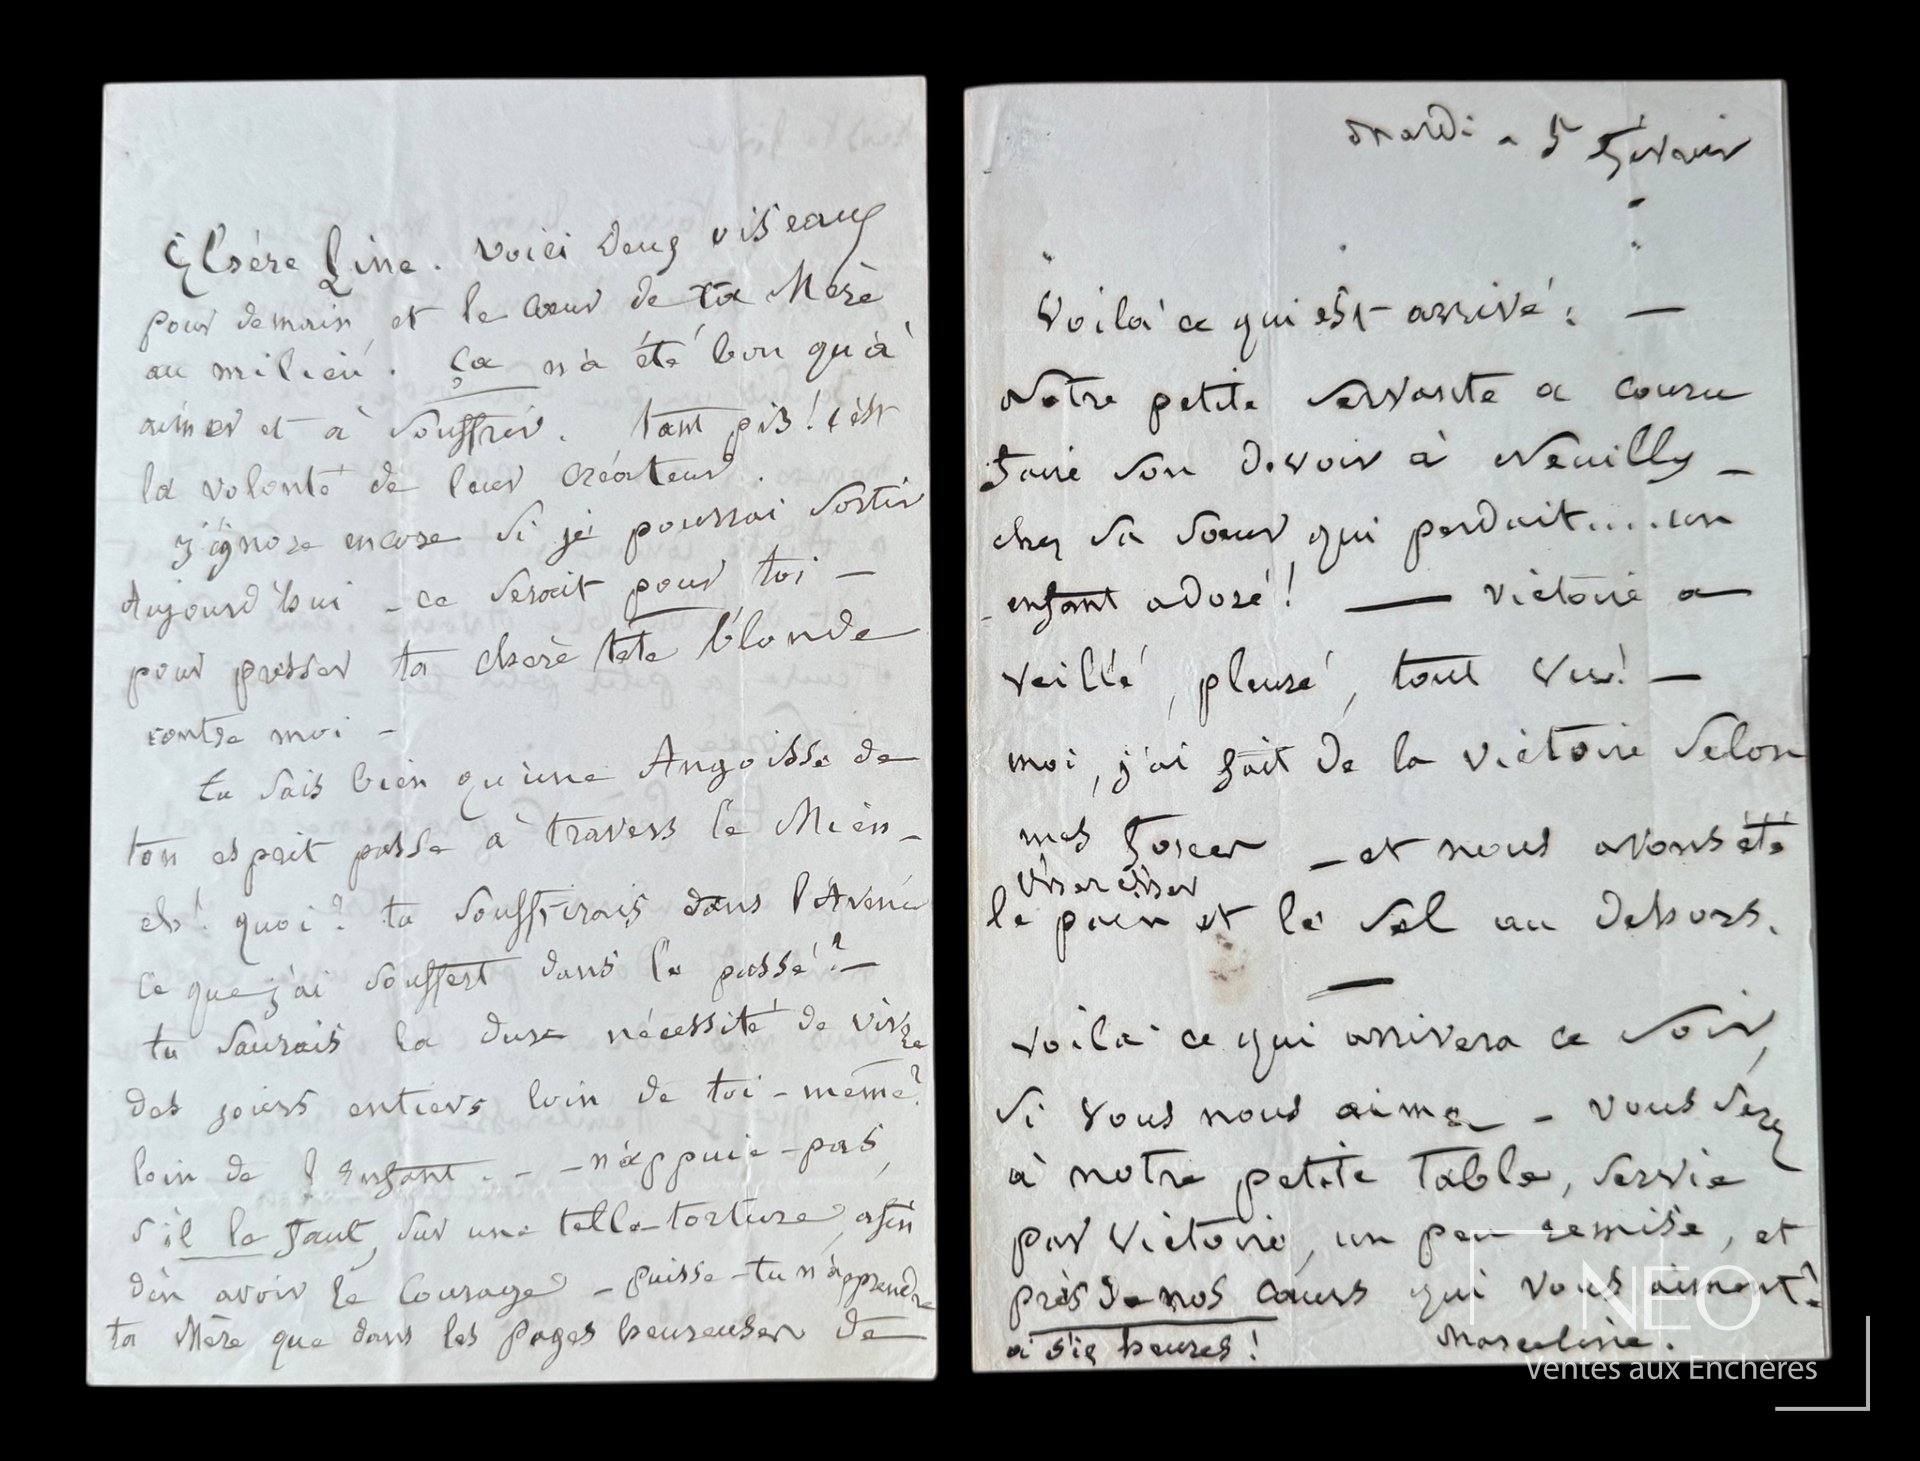 Chère Line. Voici deux oiseaux
pour demain et le cœur de ta Mère
au milieu. Ça n'a été bon qu'à
aimer et à souffrir. tant pis! c'est
la volonté de leur créateur.
J'ignore encore si je pourrai sortir
Aujourd'hui - ce serait pour toi -
pour presser ta chère tête blonde
contre moi -
tu sais bien qu'une Angoisse de
ton esprit passe à travers le Mien -
eh! quoi? tu souffrirais dans l'Avenir
ce que j'ai souffert dans le passé? -
tu saurais la dure nécessité de vivre
des jours entiers loin de toi-même?
loin de l'Enfant. - - n'appuie-pas,
s'il le faut, sur une telle torture, afin
d'en avoir le Courage - puisse-tu n'apprendre
ta Mère que dans les pages heureuses de
Mardi - 5 février
Voilà ce qui est arrivé: -
Notre petite servante a couru
faire son devoir à Neuilly -
chez sa sœur qui perdait.....un
enfant adoré! — Victoire a
veillé, pleuré, tout vu! -
moi, j'ai fait de la victoire selon
mes forces - et nous avons été
le pain et le sel au dehors.
—
voilà ce qui arrivera ce soir,
si vous nous aimez - vous serez
à notre petite table, servie
par Victoire, un peu remise, et
près de nos cœurs qui vous aiment.
à six heures! Marceline.
NEO
Ventes aux Enchères